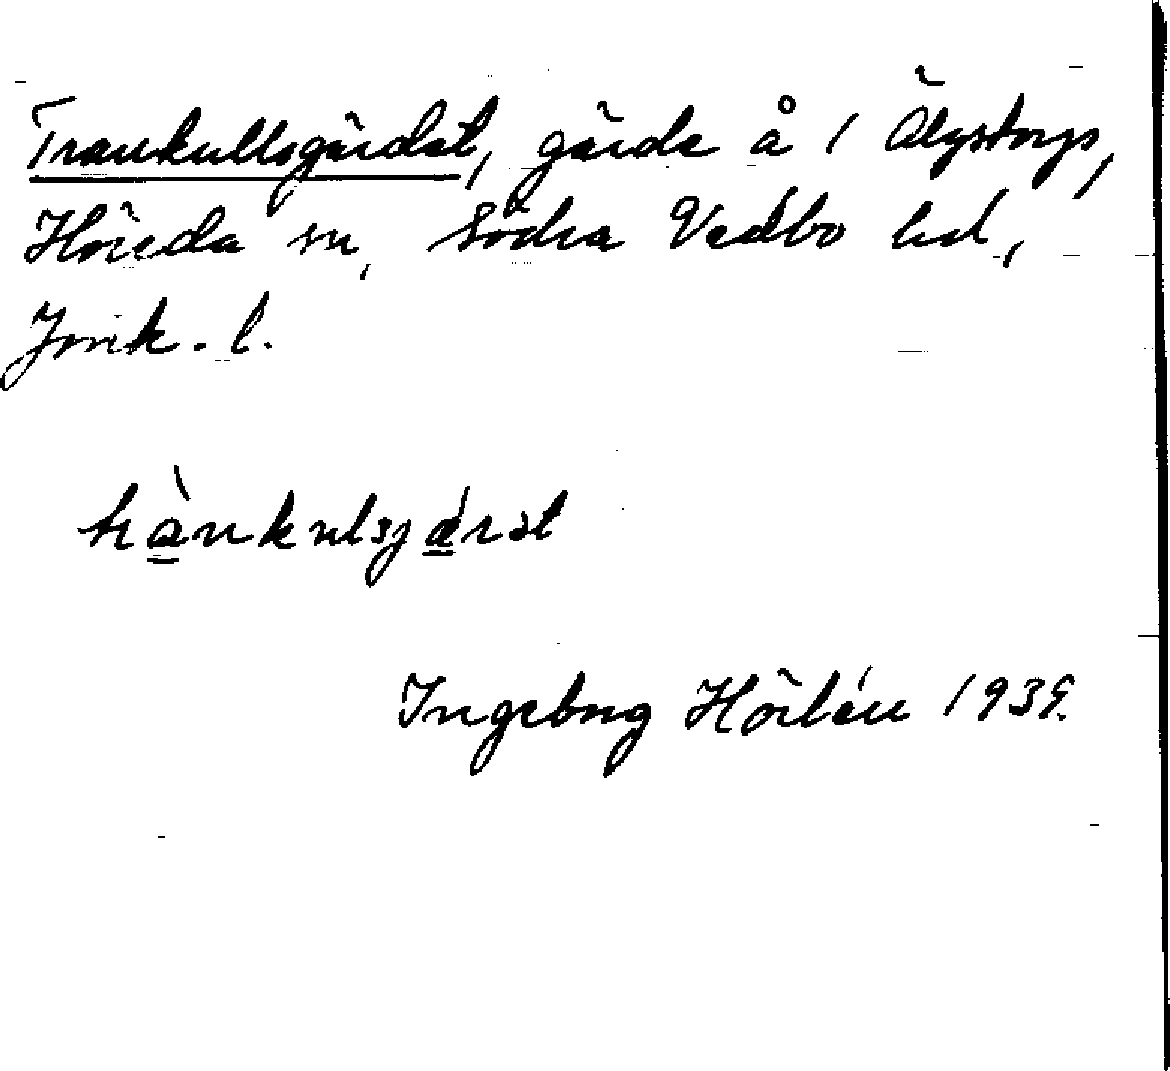 Trankullsgärdet, gärde å 1 Älgstorp,
Höreda sn, Södra Vedbo hd,
Jmk. l.
trànkulsjárət
Ingeborg Hörlén 1939.